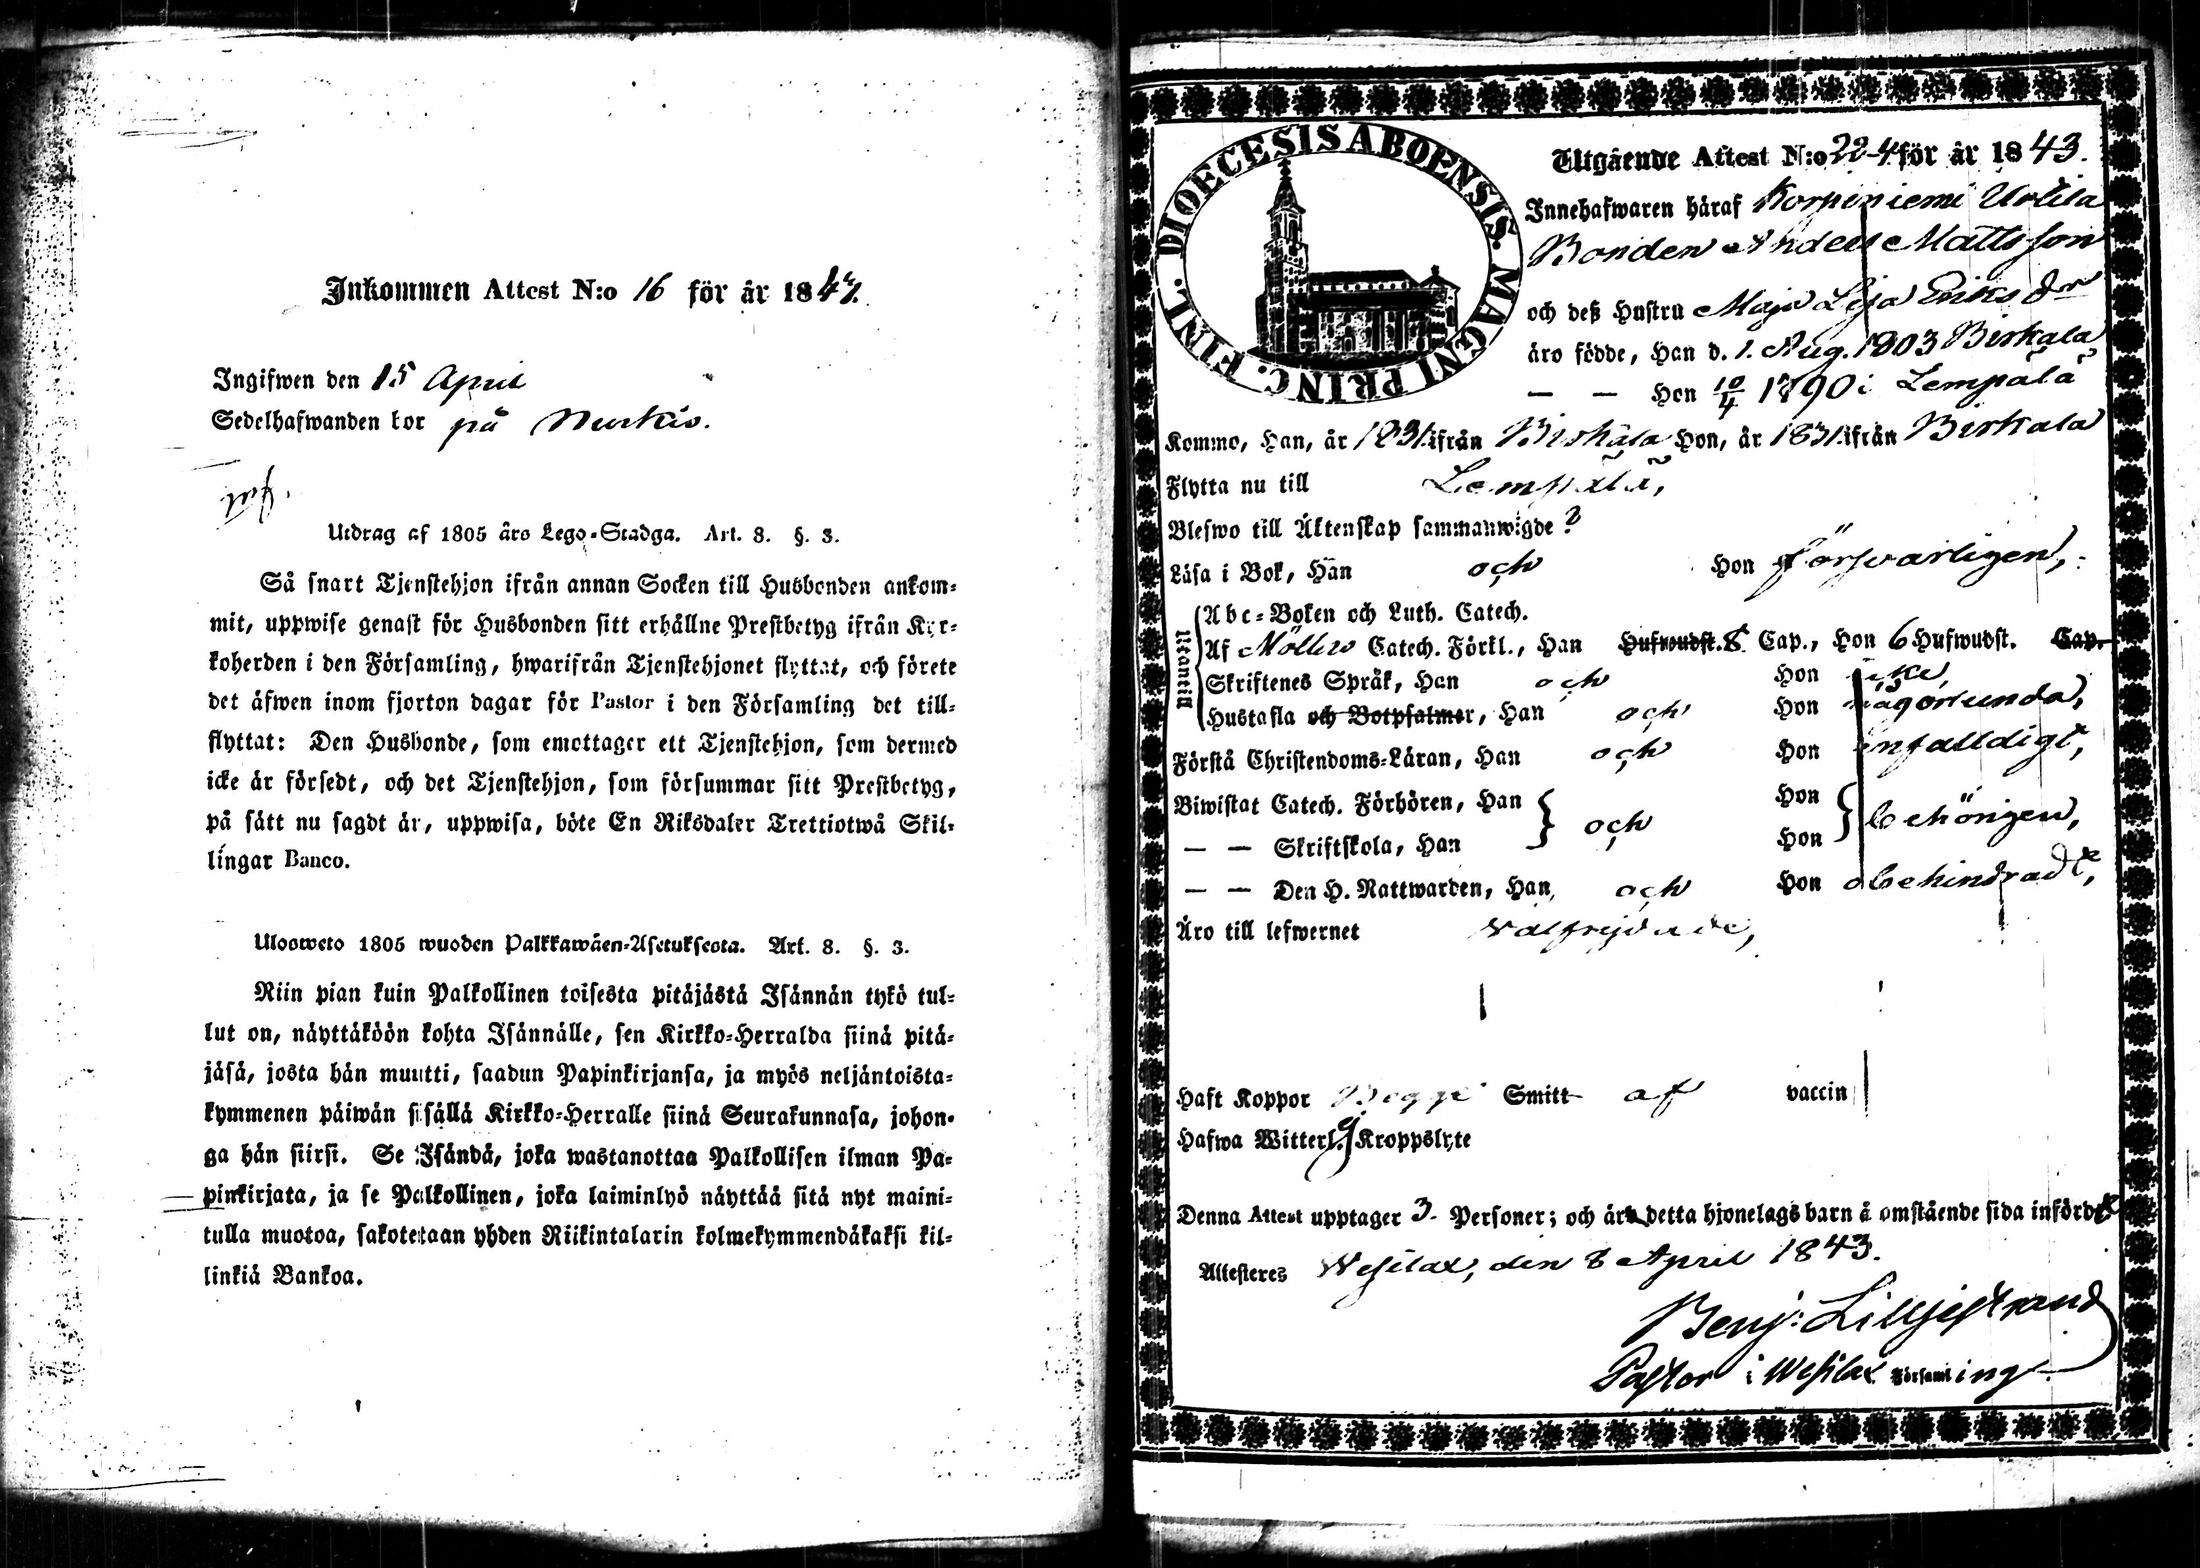 Inkommen Attest N:o 16 för år 1843.
Ingifwen den 15 April
Sedelhafwanden bor på Nurkis.
Utdrag af 1805 års Lego-Stadga. Art. 8. §. 3.
Så snart Tjenstehjon ifrån annan Socken till Husbonden ankom-
mit, uppwise genast för Husbonden sitt erhållne Prestbetyg ifrån Kyr-
koherden i den Församling, hwarifrån Tjenstehjonet flyttat, och förete
det äfwen inom fjorton dagar för Pastor i den Församling det till-
flyttat: Den Husbonde, som emottager ett Tjenstehjon, som dermed
icke är försedt, och det Tjenstehjon, som försummar sitt Prestbetyg,
på sätt nu sagdt är, uppwisa, böte En Riksdaler Trettiotwå Skil-
lingar Banco.
Ulosweto 1805 wuoden Palkkawäen-Asetuksesta. Art. 8. §. 3.
Niin pian kuin Palkollinen toisesta pitäjästä Isännän tykö tul-
lut on, näyttäköön kohta Isännälle, sen Kirkko-Herralda siinä pitä-
jäsä, josta hän muutti, saadun Papinkirjansa, ja myös neljäntoista-
kymmenen päiwän sisällä Kirkko-Herralle siinä Seurakunnasa, johon-
ga hän siirsi. Se Isändä, joka wastanottaa Palkollisen ilman Pa-
pinkirjata, ja se Palkollinen, joka laiminlyö näyttää sitä nyt maini-
tulla muotoa, sakotetaan yhden Riikintalarin kolmekymmendäkaksi kil-
linkiä Bankoa.
DIOECESIS ABOENSIS. MAGNI PRINC. FINL.
Utgående Attest N:o 224 för år 1843.
Innehafwaren häraf Korpiniemi Uotila
Bonden Anders Mattsson
och deß Hustru Maja Lisa Eriks dr
äro födde, Han d. 1. Aug. 1803 Birkala
— — Hon 10/4 1790 i Lempälä
Kommo, Han, år 1831 ifrån Birkala Hon, år 1831 ifrån Birkala
Flytta nu till Lempälä,
Blefwo till Äktenskap sammanwigde ?
Läsa i Bok, Han och Hon försvarligen,
Utantill
Abc-Boken och Luth. Catech.
Af Möllers Catech. Förkl., Han Hufwudst. 8 Cap., Hon 6 Hufwudst. Cap.
Skriftenes Språk, Han och Hon icke,
Hustafla och Botpsalmer, Han och Hon någorlunda,
Förstå Christendoms-Läran, Han och Hon enfalldigt,
Biwistat Catech. Förhören, Han och Hon behörigen,
— — Skriftskola, Han Hon
— — Den H. Nattwarden, Han och Hon obehindradt,
Äro till lefwernet välfrejdade,
Haft Koppor Begge Smitt af vaccin
Hafwa Witterl. Kroppslyte
Denna Attest upptager 3. Personer; och äro detta hjonelags barn å omstående sida införde
Attesteres Wesilax, den 8 April 1843.
Benj: Lilljestrand
Pastor i Wesilax Församling